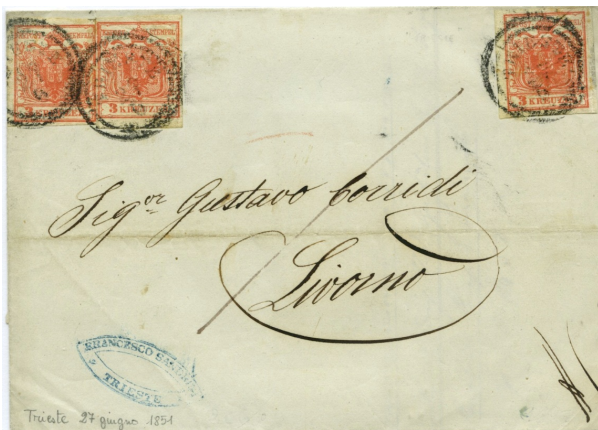 STEMPEL
3 KREUZER
3 KREUZ
Sig.or Gustavo Corridi
Livorno
FRANCESCO
TRIESTE
Trieste 27 giugno 1851